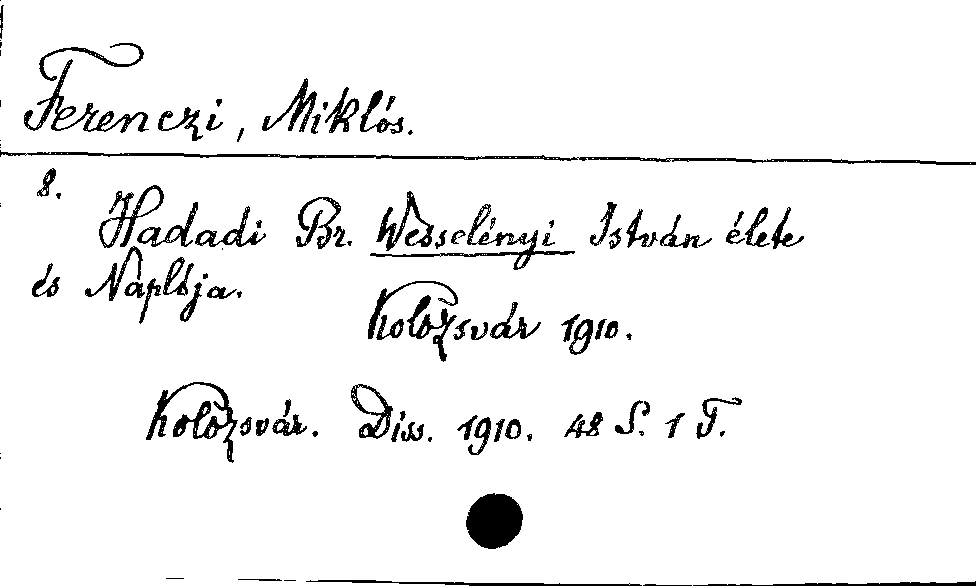 Ferenczi, Miklós.
8.
Hadadi Br. Wesselényi István élete
és Naplója.
Kolozsvár 1910.
Kolozsvár. Diss. 1910. 48 S. 1 T.